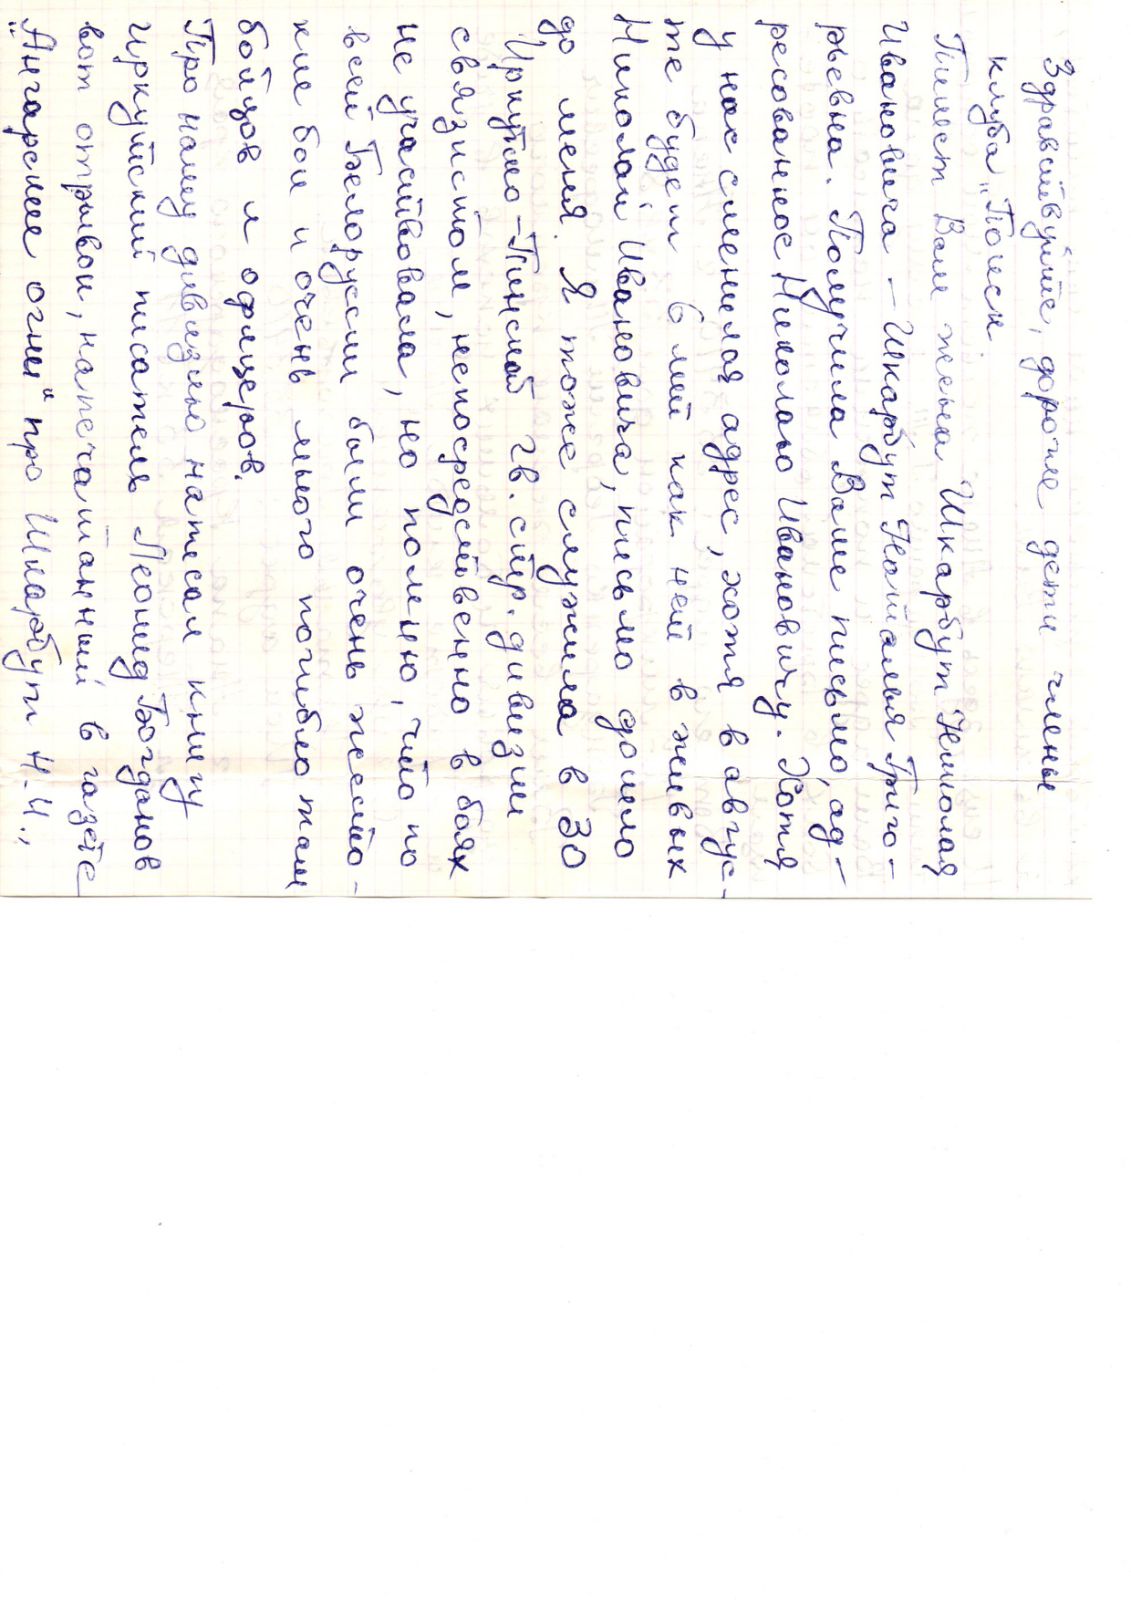 Здравствуйте, дорогие дети члены
клуба "Поиск".
Пишет Вам жена Шкарбут Николая
Ивановича - Шкарбут Наталья Григо-
рьевна. Получила Ваше письмо, ад-
ресованное Николаю Ивановичу. Хотя
у нас сменился адрес, хотя в авгус-
те будет 6 лет как нет в живых
Николай Ивановича, письмо дошло
до меня. Я тоже служила в 30
Иркутно-Пинской гв. стр. дивизии
связистом, непосредственно в боях
не участвовала, но помню, что по
всей Белоруссии были очень жесто-
кие бои и очень много погибло там
бойцов и офицеров.
Про нашу дивизию написал книгу
Иркутский писатель Леонид Богданов
вот отрывок, напечатанный в газете
"Ангарские огни" про Шкарбут Н.И.,